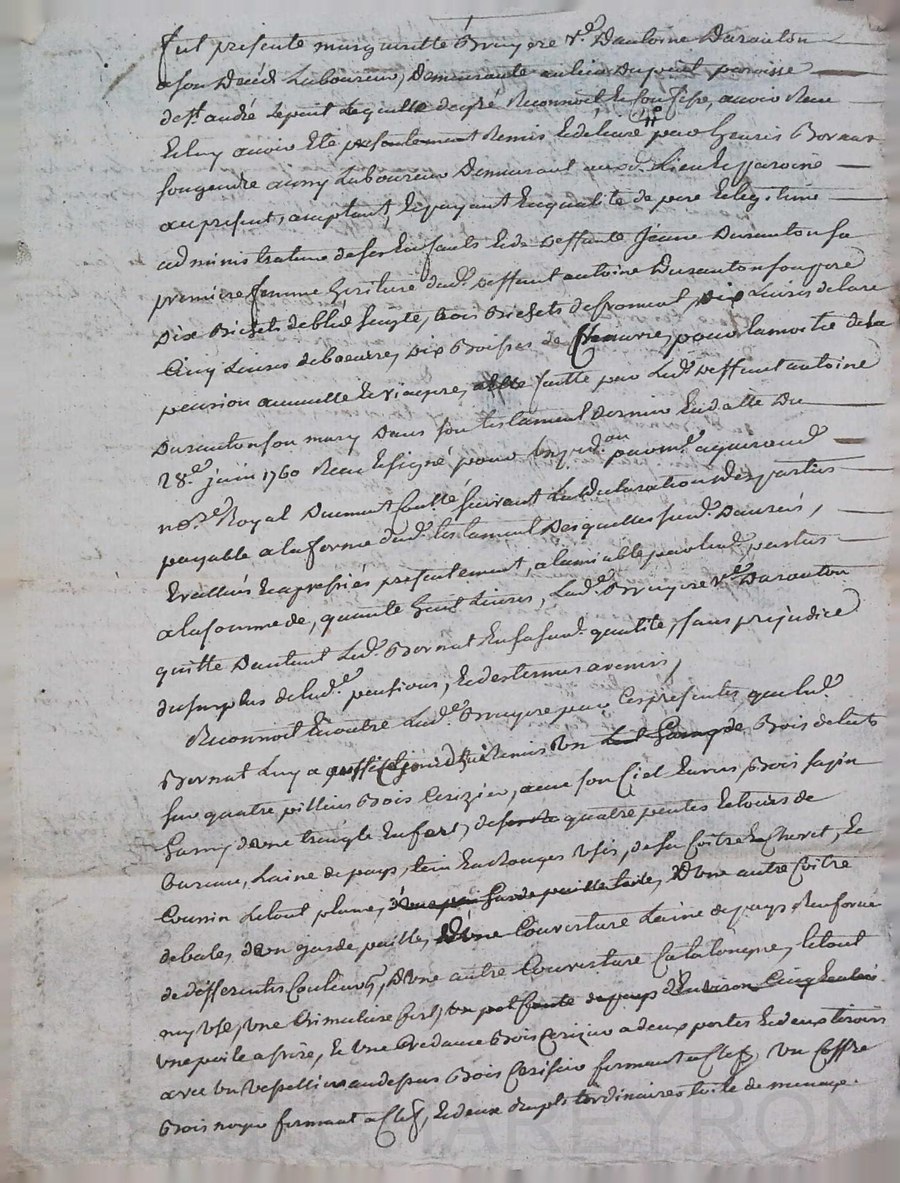 fut presente margueritte Bruyere v.e D'antoine Daranton
a son Decéd Laboureur, Demeurante au lieu Dupont paroisse
de st andré Lepont Laquelle degré Reconnoit et Confesse, avoir Reçu
Et luy avoir Eté presentement Remis Et delivré par Henris Bornat
son gendre aussy Laboureur Demeurant aud. Lieu Et paroisse
au present, acceptant, Et payant En qualité de pere Et legitime
administrateur de ses Enfants Et de Deffunte Jeane Duranton sa
premiere femme heritiere dud. Deffunt antoine Duranton son pere
Dix Bichets de bled seigle, trois Bichets de froment, Dix Livres de lare
Cinq Livres de beurre, Dix Brasses de Chenavre, pour la moitié de la
pension annuelle Et viagere, faitte par Led. Deffunt antoine
Duranton son mary Dans son testament Dernier En datte Du
28.e juin 1760 Reçu Et signé pour Expédi.on par m.e
no.re Royal Dument Controllé suivant La Declaration Des parties
payable a la forme dud. testament Desquelles sud. Danrées,
Evalluées Et apressiées presentement, a l'amiable par lesd. parties
a la somme de, quarante huit Livres, Lad.e Bruyere v.e Daranton
quitte D'autant Led. Bornat En sa sud. qualité, sans prejudice
du surplus de lad.e pension, Et des termes avenir,
Reconnoit En outre Lad.e Bruyere par Ces presentes, que led.
Bornat Luy a aussi Cejourd'hui Remis Un Lit Garny de Bois de lit
sur quatre pilliers Bois Cerizier, avec son Ciel Bois sapin
Garny d'une tringle En fert, de quatre pentes Et tours de
Bureau, Laine de pays, tein En Rouges Usés, de sa Coitre Et Chevet, Et
Coussin Letout plume, d'une Garde paille toile, D'Une autre Coitre
de bales, d'un garde paille, D'Une Couverture Laine de pays Renforcée
de differentes Couleurs, D'Une autre Couverture Catalongne, letout
my Usé, Une Crimalliere fert, Un pot fonte de pays D'Environ Cinq
Une poile a frire, Et Une Credance Bois Cerizier a deux portes Et deux tiroirs
avec Un Vesellier au dessus Bois Cerisier fermant a Clef, Un Coffre
Bois noyer fermant a Clef, Et deux draps d'ordinaires toile de menage.